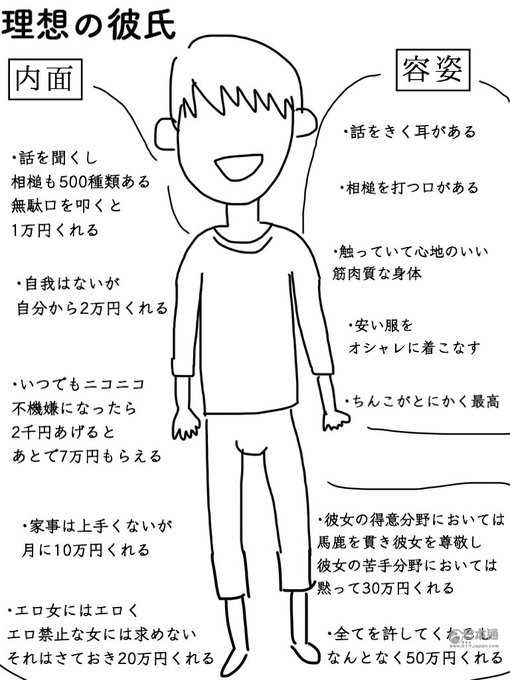 理想の彼氏
内面
・話を聞くし
相槌も500種類ある
無駄口を叩くと
1万円くれる
・自我はないが
自分から2万円くれる
・いつでもニコニコ
不機嫌になったら
2千円あげると
あとで7万円もらえる
・家事は上手くないが
月に10万円くれる
・エロ女にはエロく
エロ禁止な女には求めない
それはさておき20万円くれる
容姿
・話をきく耳がある
・相槌を打つ口がある
・触っていて心地のいい
筋肉質な身体
・安い服を
オシャレに着こなす
・ちんこがとにかく最高
・彼女の得意分野においては
馬鹿を貫き彼女を尊敬し
彼女の苦手分野においては
黙って30万円くれる
・全てを許してくれるし
なんとなく50万円くれる